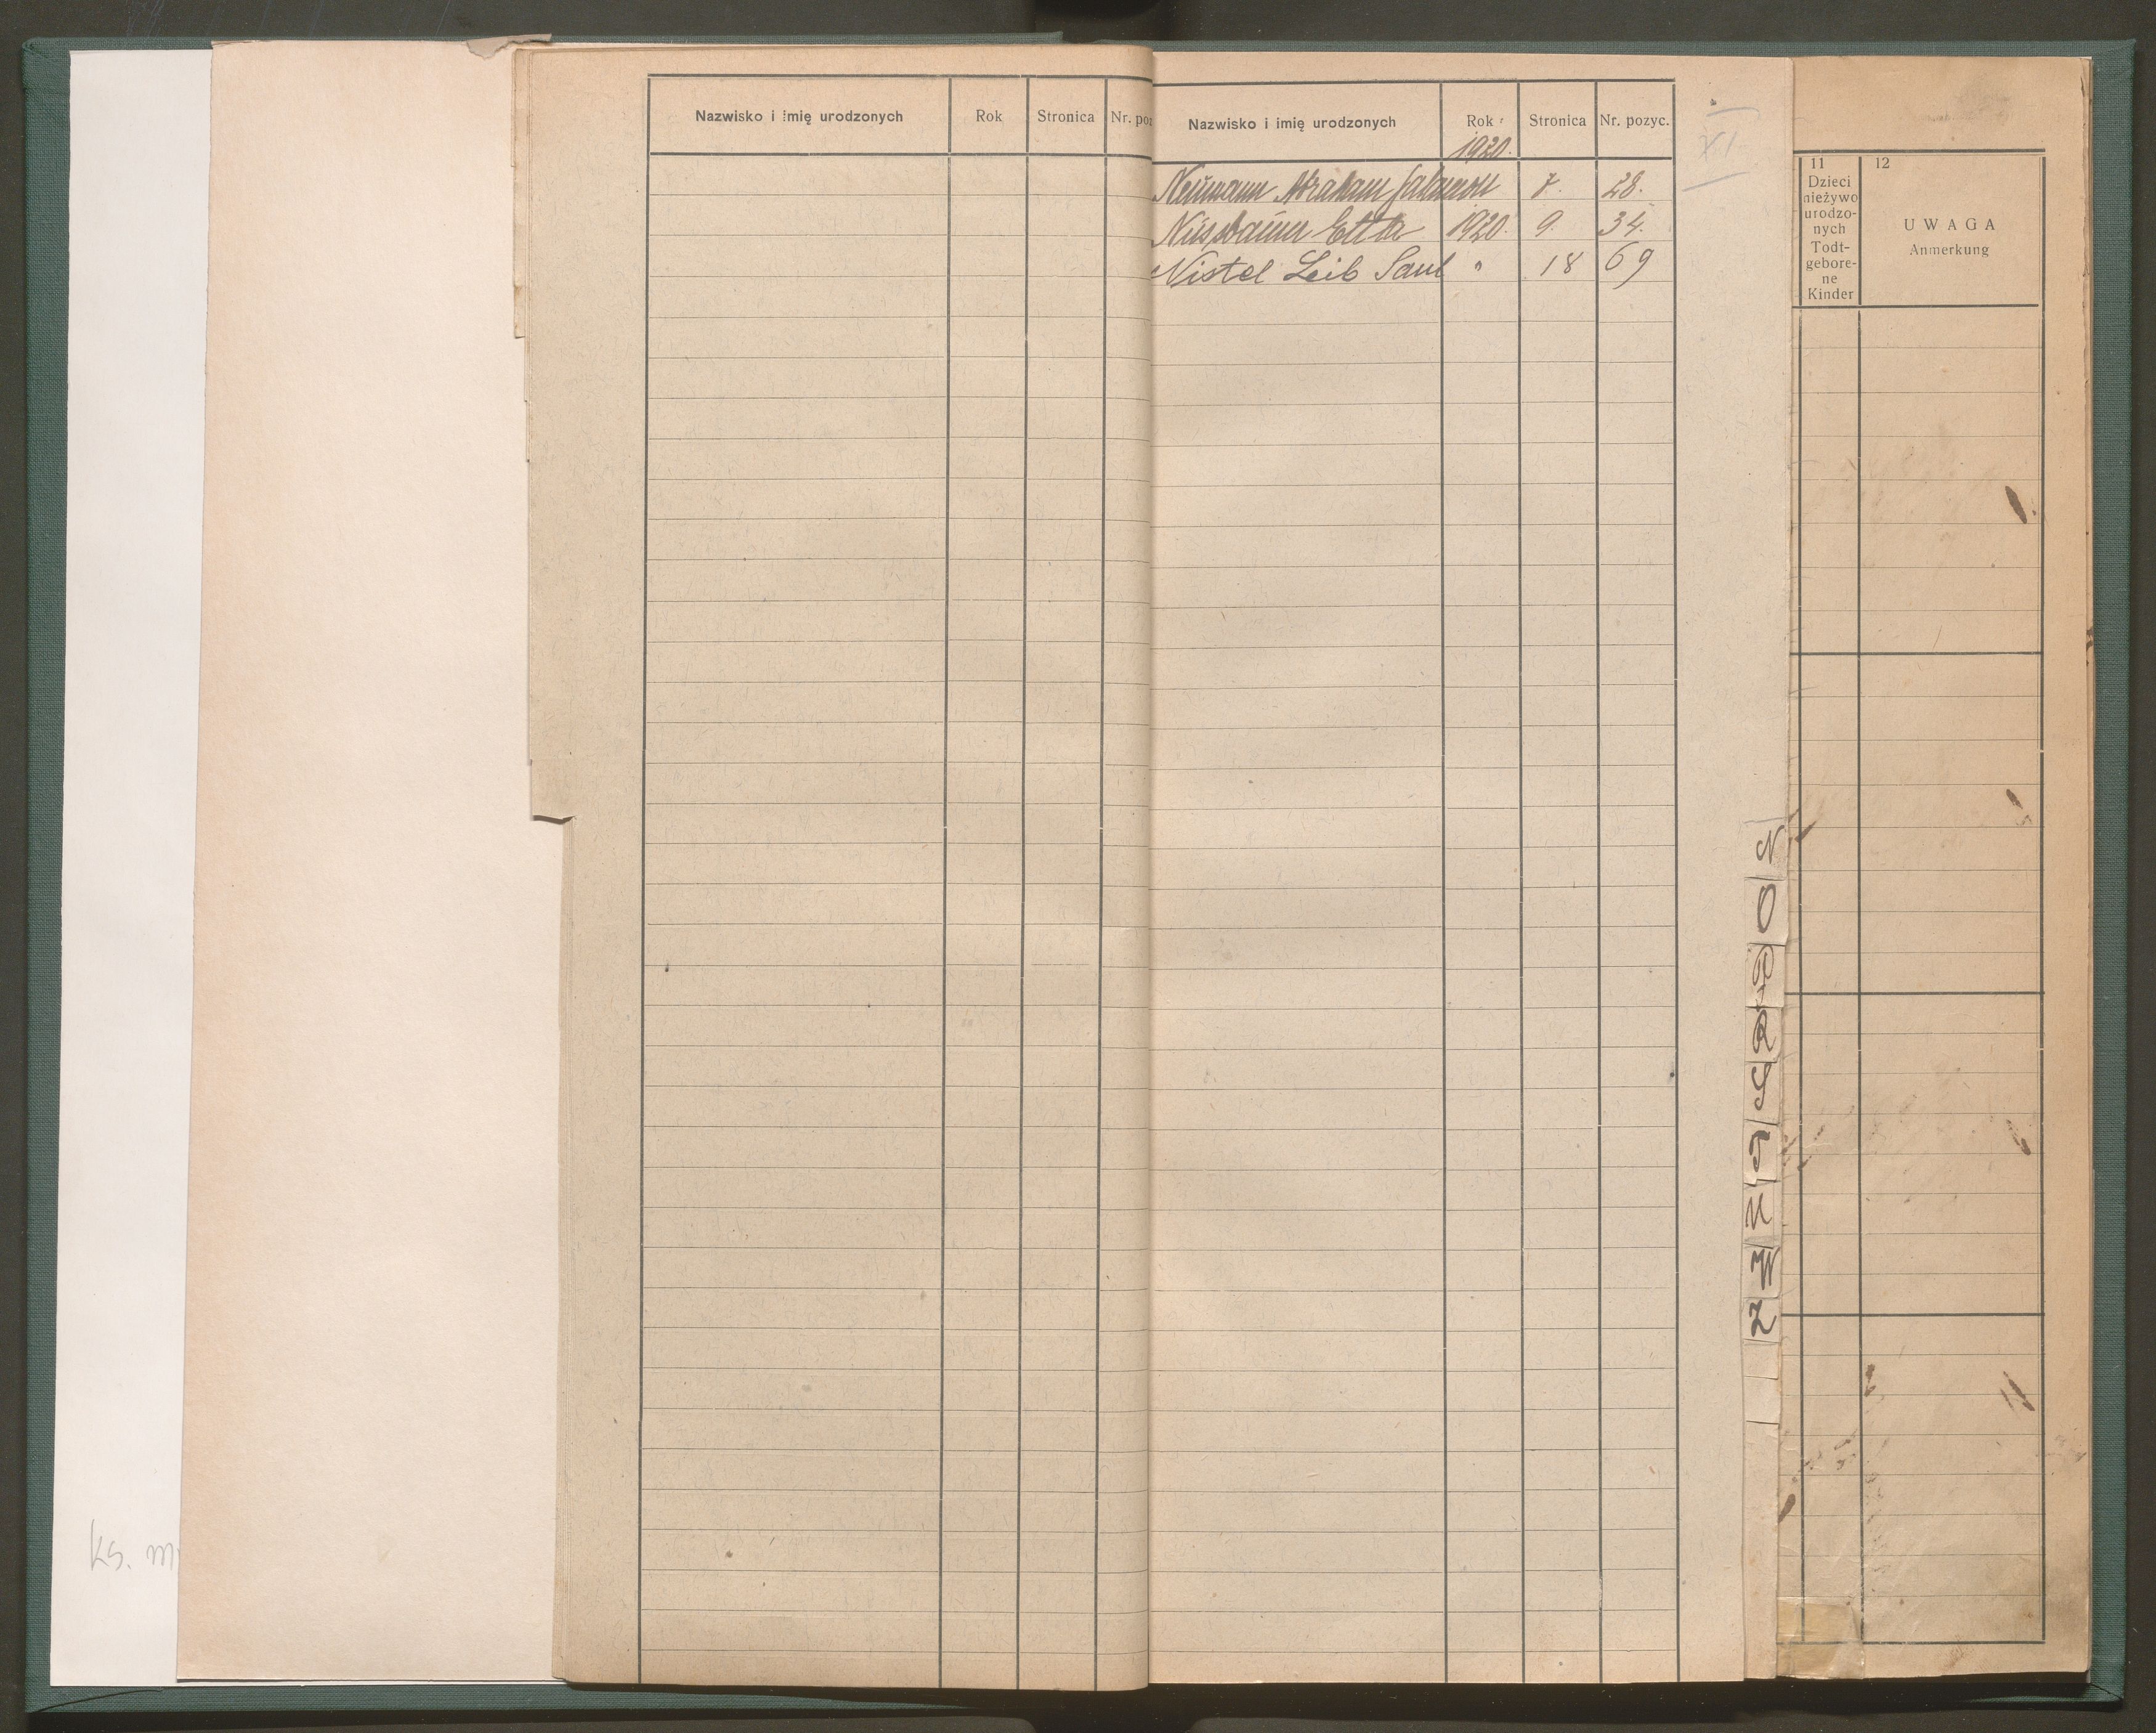 Nazwisko i imię urodzonych Rok Stronica Nr. poz
Nazwisko i imię urodzonych Rok Stronica Nr. pozyc.
1920.
Neumann Abraham Salamon 7. 28.
Nussbaum Etta 1920. 9. 34.
Nistel Leib Saul " 18 69
XI
11
Dzieci
nieżywo
urodzo-
nych
Todt-
gebore-
ne
Kinder
12
UWAGA
Anmerkung
N
O
P
R
S
T
U
W
Z
ks. m